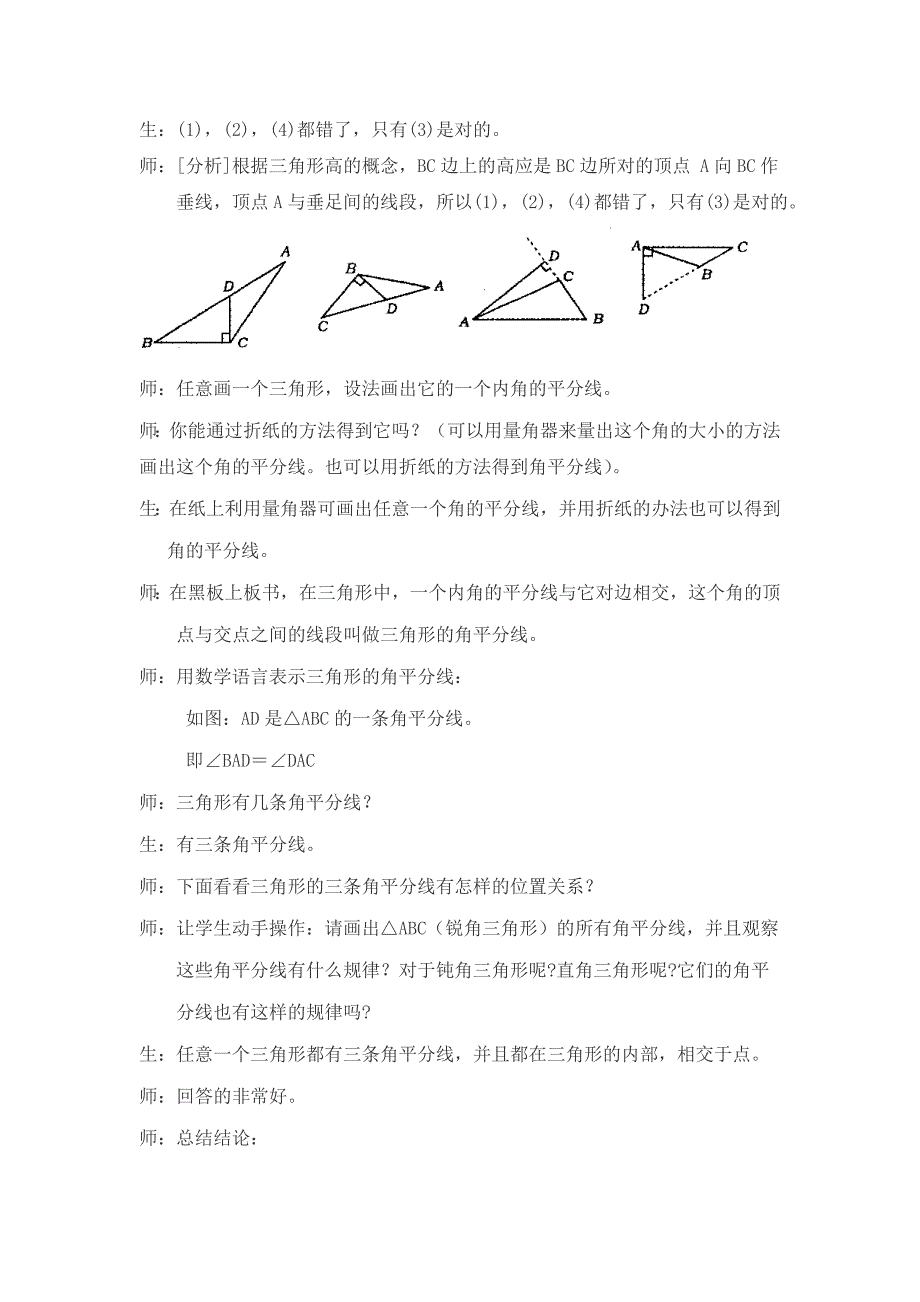 生：(1)，(2)，(4)都错了，只有(3)是对的。
师：[分析]根据三角形高的概念，BC边上的高应是BC边所对的顶点 A向BC作
垂线，顶点A与垂足间的线段，所以(1)，(2)，(4)都错了，只有(3)是对的。
A
D
B
C
B
A
C
D
D
C
A
B
A
C
B
D
师：任意画一个三角形，设法画出它的一个内角的平分线。
师：你能通过折纸的方法得到它吗？（可以用量角器来量出这个角的大小的方法
画出这个角的平分线。也可以用折纸的方法得到角平分线）。
生：在纸上利用量角器可画出任意一个角的平分线，并用折纸的办法也可以得到
角的平分线。
师：在黑板上板书，在三角形中，一个内角的平分线与它对边相交，这个角的顶
点与交点之间的线段叫做三角形的角平分线。
师：用数学语言表示三角形的角平分线：
如图：AD是△ABC的一条角平分线。
即∠BAD＝∠DAC
师：三角形有几条角平分线？
生：有三条角平分线。
师：下面看看三角形的三条角平分线有怎样的位置关系？
师：让学生动手操作：请画出△ABC（锐角三角形）的所有角平分线，并且观察
这些角平分线有什么规律？对于钝角三角形呢?直角三角形呢?它们的角平
分线也有这样的规律吗?
生：任意一个三角形都有三条角平分线，并且都在三角形的内部，相交于点。
师：回答的非常好。
师：总结结论：